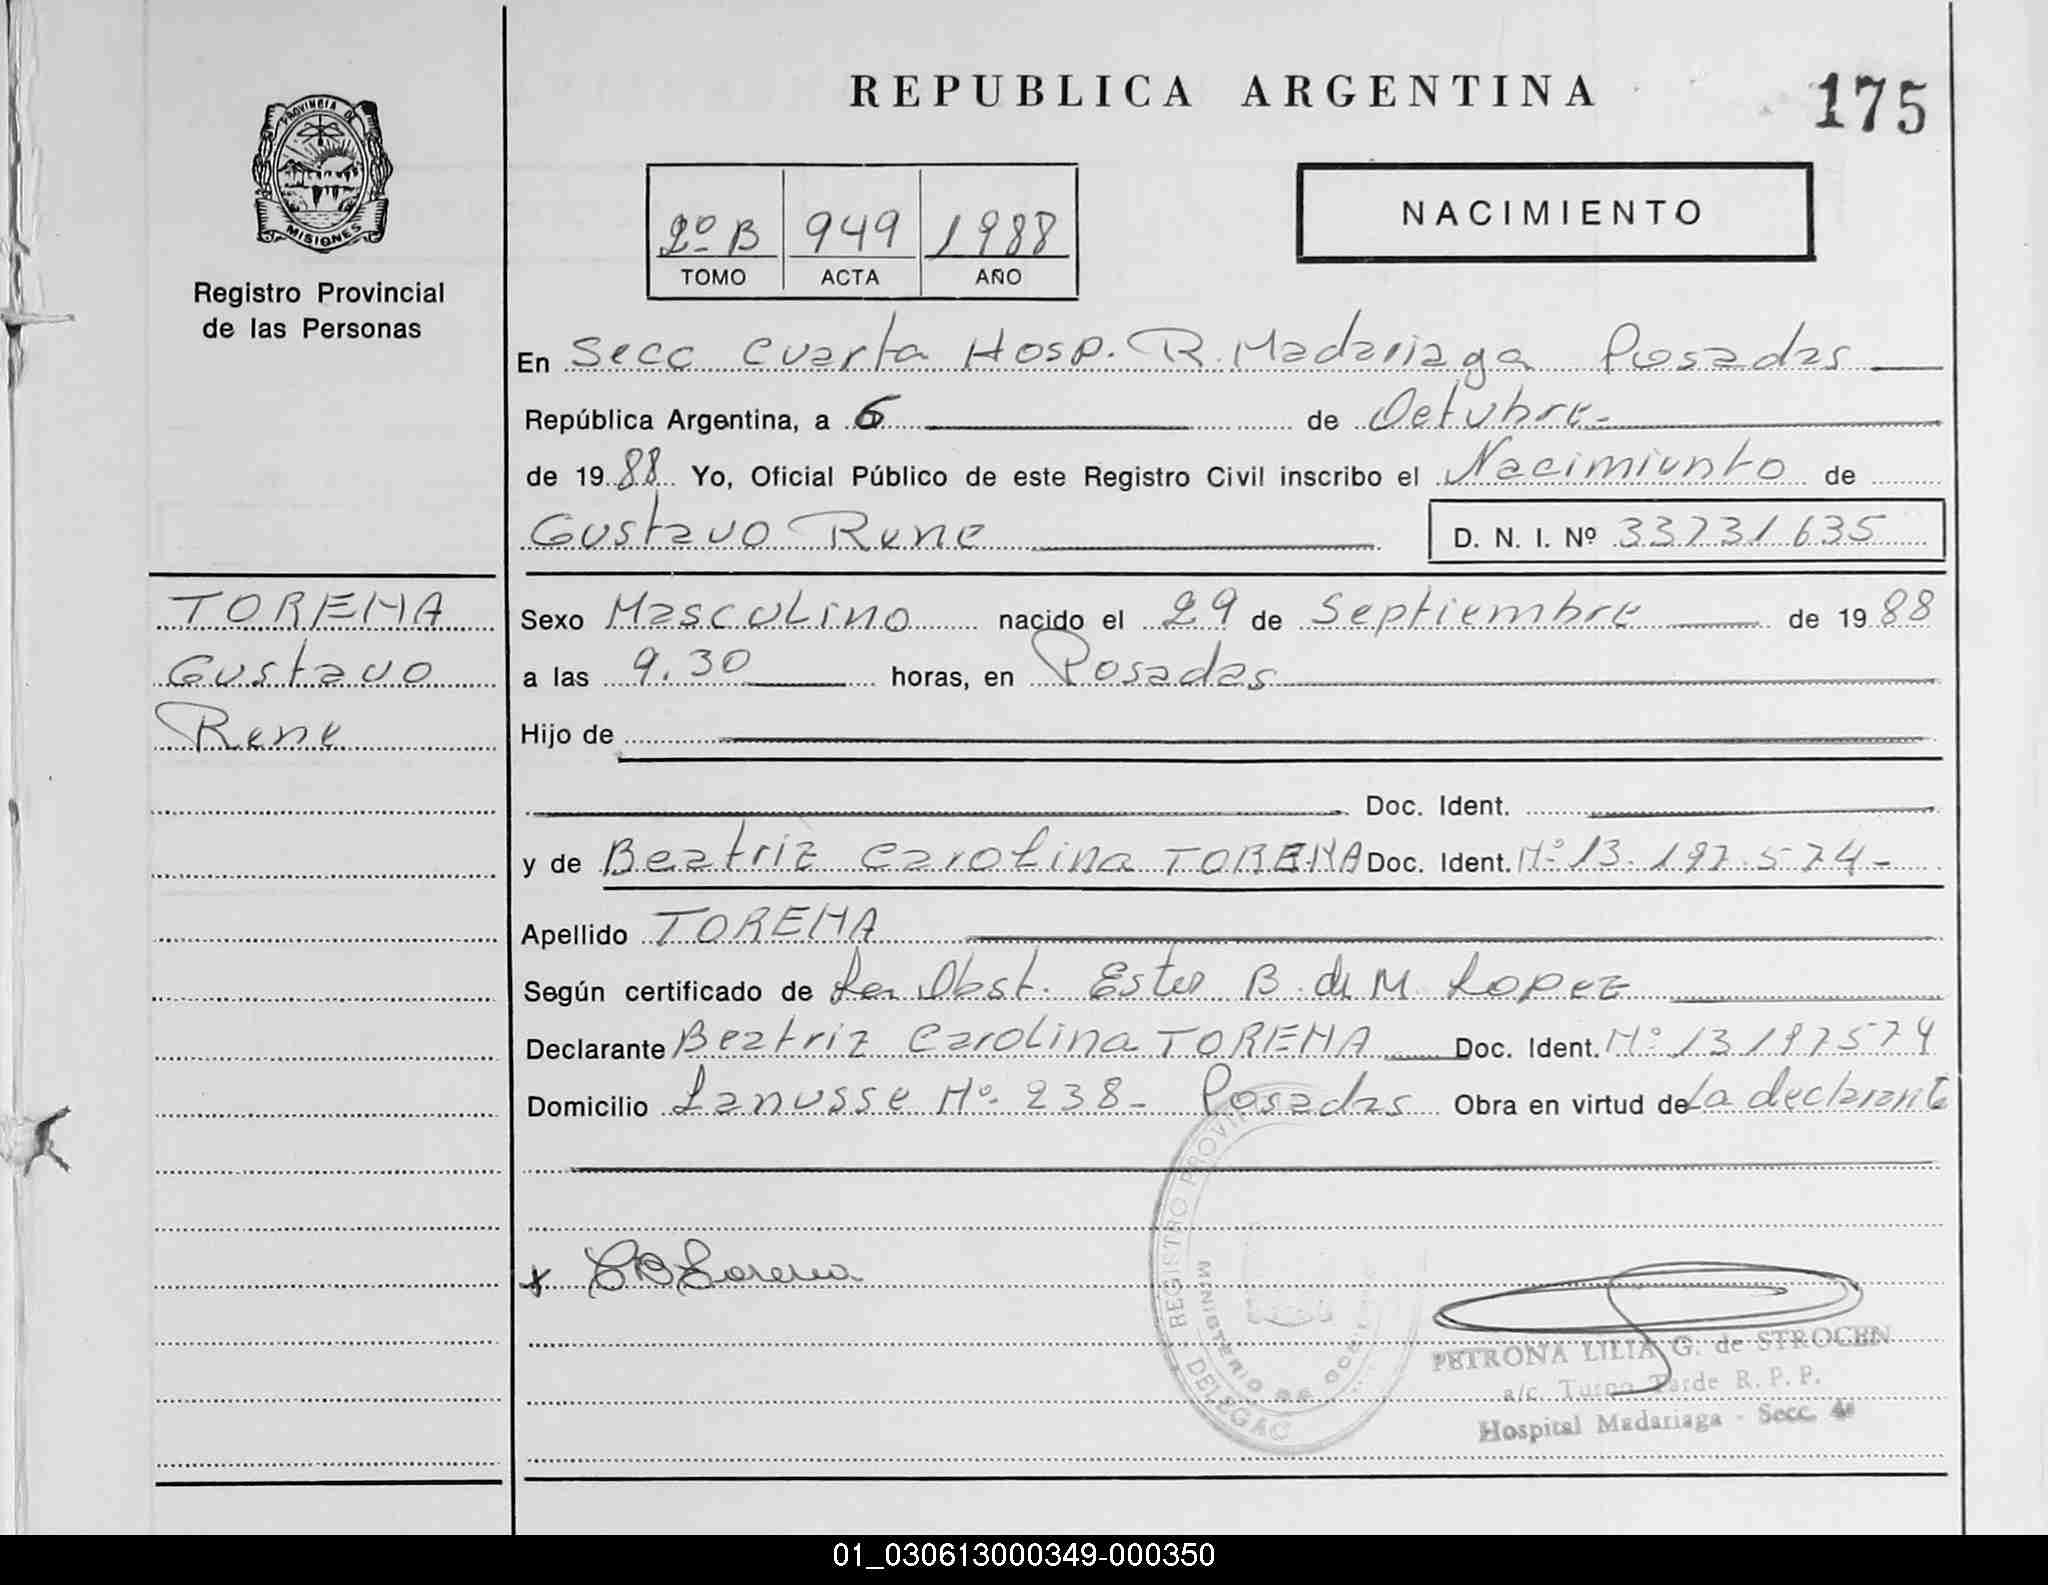 REPUBLICA ARGENTINA
175
PROVINCIA DE
MISIONES
Registro Provincial
de las Personas
2º B 949 1988
TOMO ACTA AÑO
NACIMIENTO
En Secc Cuarta Hosp. R. Madariaga Posadas
República Argentina, a 6 de Octubre-
de 1988 Yo, Oficial Público de este Registro Civil inscribo el Nacimiento de
Gustavo Rene D. N. I. Nº 33731635
TOREHA
Gustavo
Rene
Sexo Masculino nacido el 29 de Septiembre de 1988
a las 9.30 horas, en Posadas
Hijo de
Doc. Ident.
y de Beatriz Carolina TOREHA Doc. Ident. Nº 13.197.574-
Apellido TOREHA
Según certificado de La Obst. Ester B. de M Lopez
Declarante Beatriz Carolina TOREHA Doc. Ident. Nº 13197574
Domicilio Lanusse Nº. 238- Posadas Obra en virtud de La declarante
REGISTRO PROVI
MINISTERIO DE GOB
DELEGAC
PETRONA LILIA G. de STROCEN
a/c. Turno Tarde R. P. P.
Hospital Madariaga - Secc. 4ª
01_030613000349-000350